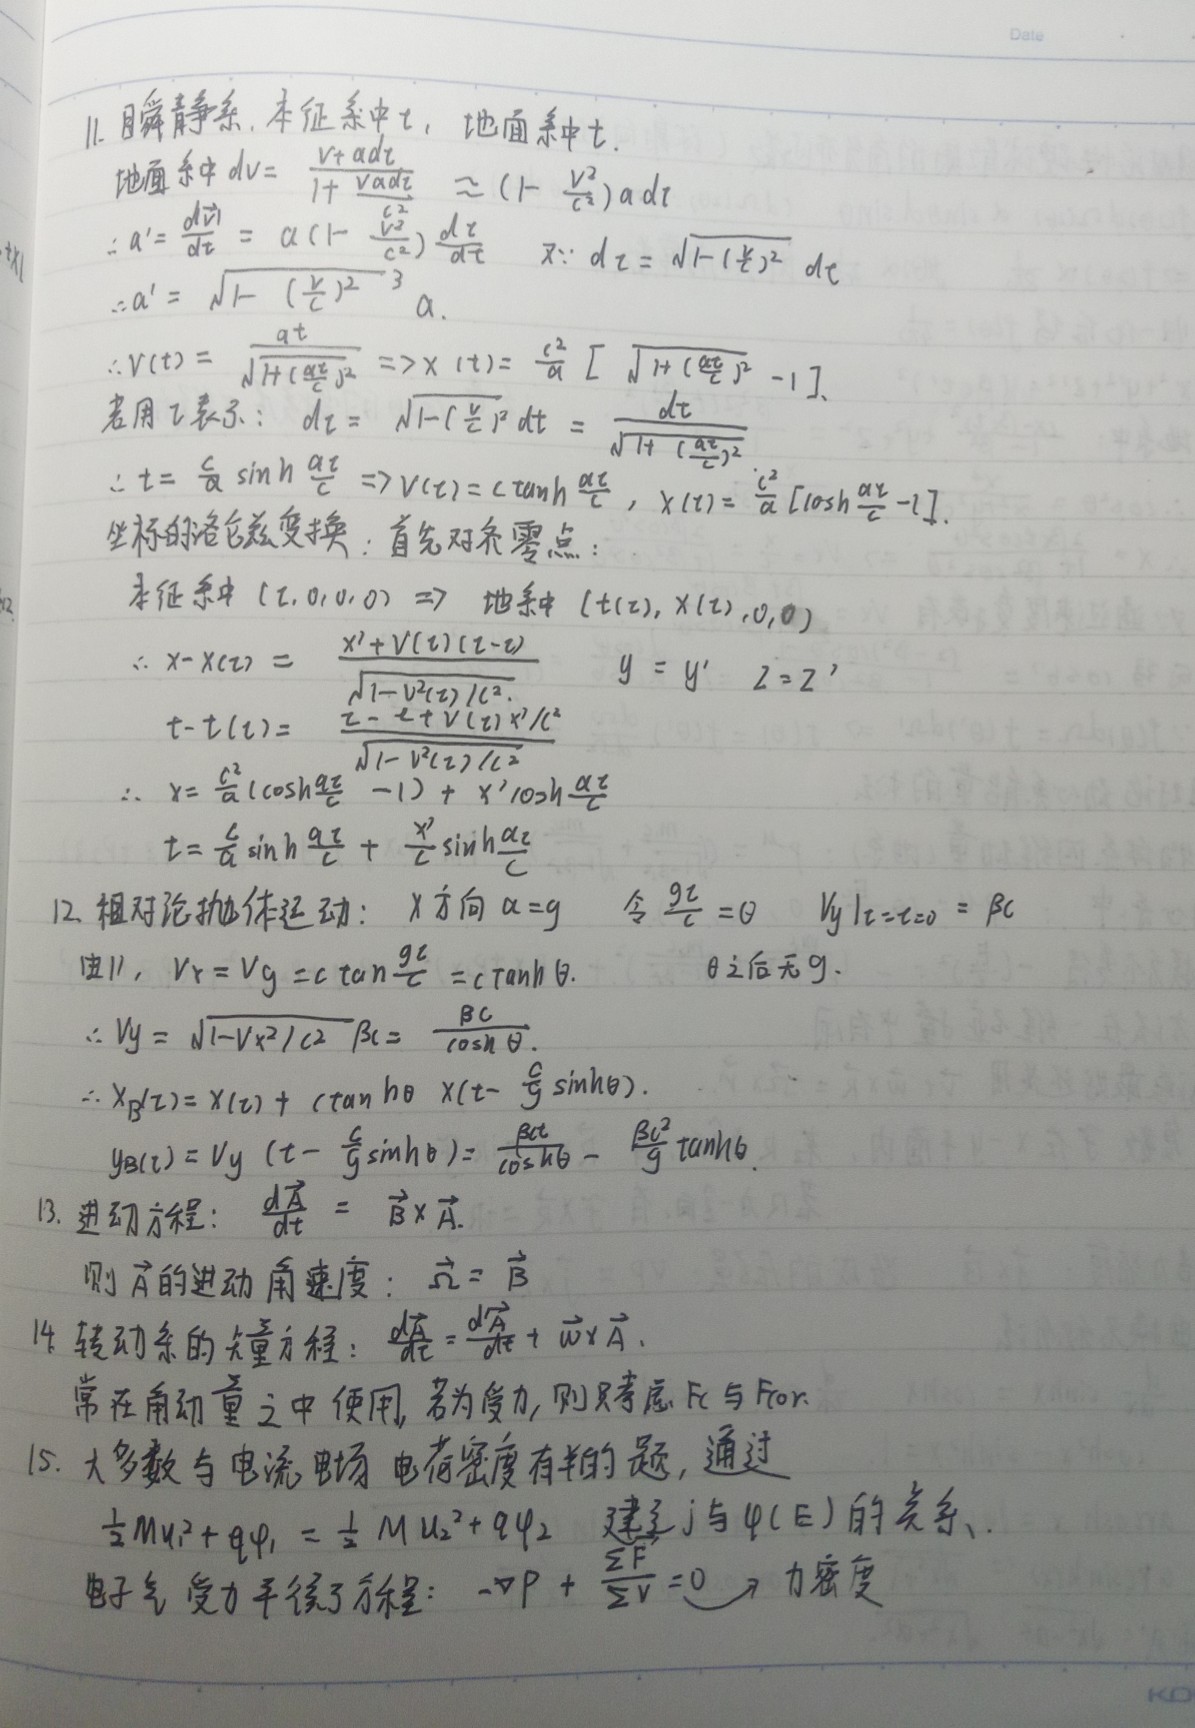 Date
11. 瞬静系. 本征系中τ, 地面系中t.
地面系中 dv = \frac{v+adτ}{1+\frac{vadτ}{c^2}} ≈ (1-\frac{v^2}{c^2})adτ
∴ a' = \frac{d\vec{v}}{dt} = a(1-\frac{v^2}{c^2})\frac{dτ}{dt} 又∵ dτ = \sqrt{1-(\frac{v}{c})^2} dt
∴ a' = \sqrt{1-(\frac{v}{c})^2}^3 a.
∴ v(t) = \frac{at}{\sqrt{1+(\frac{at}{c})^2}} => x(t) = \frac{c^2}{a}[\sqrt{1+(\frac{at}{c})^2}-1].
若用τ表示: dτ = \sqrt{1-(\frac{v}{c})^2} dt = \frac{dt}{\sqrt{1+(\frac{at}{c})^2}}
∴ t = \frac{c}{a} sinh\frac{aτ}{c} => v(τ) = c tanh\frac{aτ}{c}, x(τ) = \frac{c^2}{a}[cosh\frac{aτ}{c}-1].
坐标的洛仑兹变换: 首先对齐零点:
本征系中 (τ,0,0,0) => 地系中 (t(τ), x(τ),0,0)
∴ x-x(τ) = \frac{x'+v(τ)(τ-τ)}{\sqrt{1-v^2(τ)/c^2}} y = y' z = z'
t-t(τ) = \frac{τ-τ+v(τ)x'/c^2}{\sqrt{1-v^2(τ)/c^2}}
∴ x = \frac{c^2}{a}(cosh\frac{aτ}{c}-1) + x'cosh\frac{aτ}{c}
t = \frac{c}{a} sinh\frac{aτ}{c} + \frac{x'}{c} sinh\frac{aτ}{c}
12. 相对论抛体运动: x方向 a=g 令 \frac{gτ}{c} = θ Vy|_{τ=t=0} = βc
由11, Vx = Vg = c tan\frac{gτ}{c} = c tanhθ. θ之后无g.
∴ Vy = \sqrt{1-Vx^2/c^2} βc = \frac{βc}{coshθ}.
∴ x_B(τ) = x(τ) + c tanhθ x(t-\frac{c}{g}sinhθ).
y_B(τ) = Vy (t-\frac{c}{g}sinhθ) = \frac{βct}{coshθ} - \frac{βc^2}{g}tanhθ.
13. 进动方程: \frac{d\vec{A}}{dt} = \vec{B}×\vec{A}.
则\vec{A}的进动角速度: \vec{Ω} = \vec{B}
14. 转动系的矢量方程: \frac{d\vec{A}}{dt} = \frac{d\vec{A}}{dt} + \vec{w}×\vec{A}.
常在角动量之中使用, 若为受力, 则只考虑 Fc 与 Fcor.
15. 大多数与电流 电场 电荷密度有关的题, 通过
\frac{1}{2}Mu_1^2+qφ_1 = \frac{1}{2}Mu_2^2+qφ_2 建立 j 与 φ(E) 的关系.
电子气受力平衡方程: -∇P + \frac{ΣF}{ΣV} = 0 → 力密度